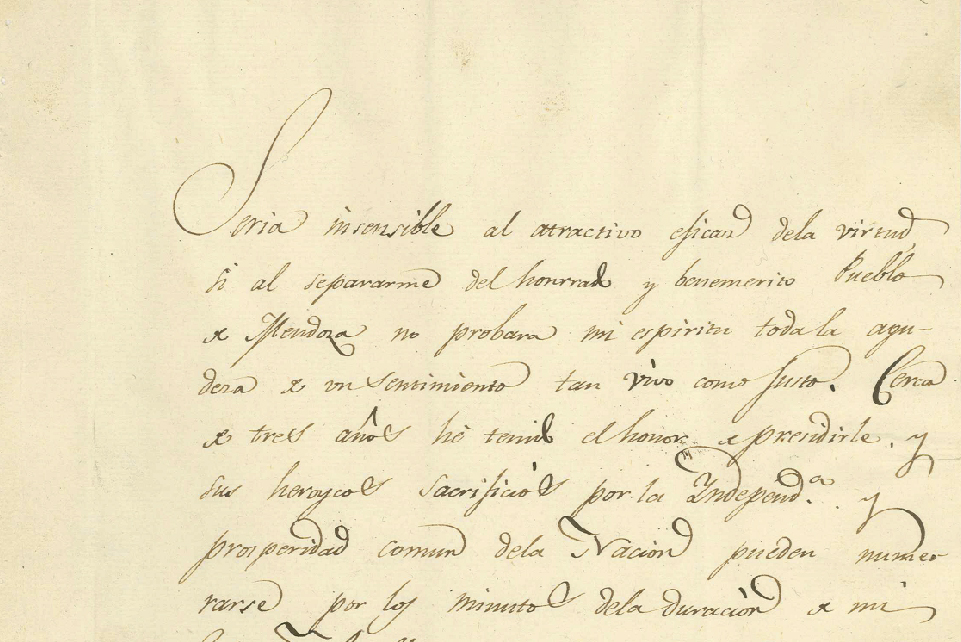 Seria insensible al atractivo eficaz dela virtud,
si al separarme del honrrado y benemerito Pueblo
de Mendoza no probara mi espiritu toda la agu-
deza de un sentimiento tan vivo como justo. Cerca
de tres años hé tenido el honor de presidirle, y
sus heroycos sacrificiós por la Independ.ª y
prosperidad comun dela Nación pueden nume-
rarse por los minutos dela duración de mi